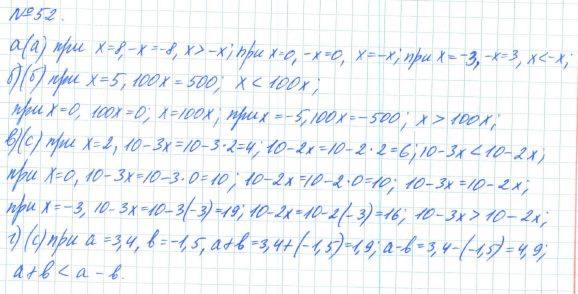 №52.
а(а) при x=8, -x=-8, x>-x; при x=0, -x=0, x=-x; при x=-3, -x=3, x<-x;
б)(б) при x=5, 100x=500; x<100x;
при x=0, 100x=0; x=100x; при x=-5, 100x=-500; x>100x;
в)(с) при x=2, 10-3x=10-3·2=4; 10-2x=10-2·2=6; 10-3x<10-2x;
при x=0, 10-3x=10-3·0=10; 10-2x=10-2·0=10; 10-3x=10-2x;
при x=-3, 10-3x=10-3(-3)=19; 10-2x=10-2(-3)=16; 10-3x>10-2x;
г)(с) при a=3,4, b=-1,5, a+b=3,4+(-1,5)=1,9; a-b=3,4-(-1,5)=4,9;
a+b<a-b.